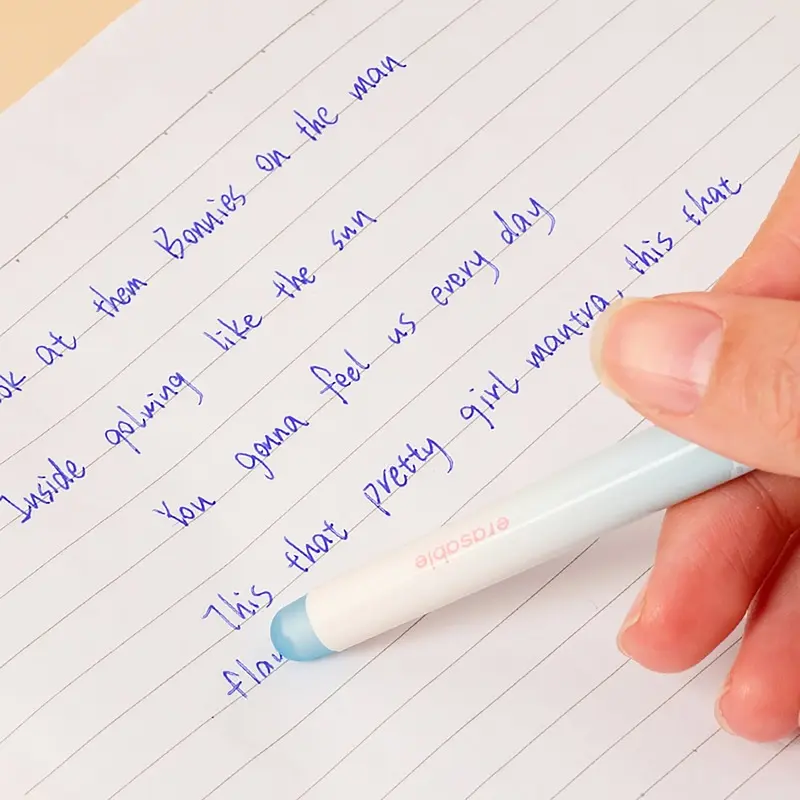 ok at them Bonnies on the man
Inside golwing like the sun
You gonna feel us every day
This that pretty girl mantra, this that
flau
erasable